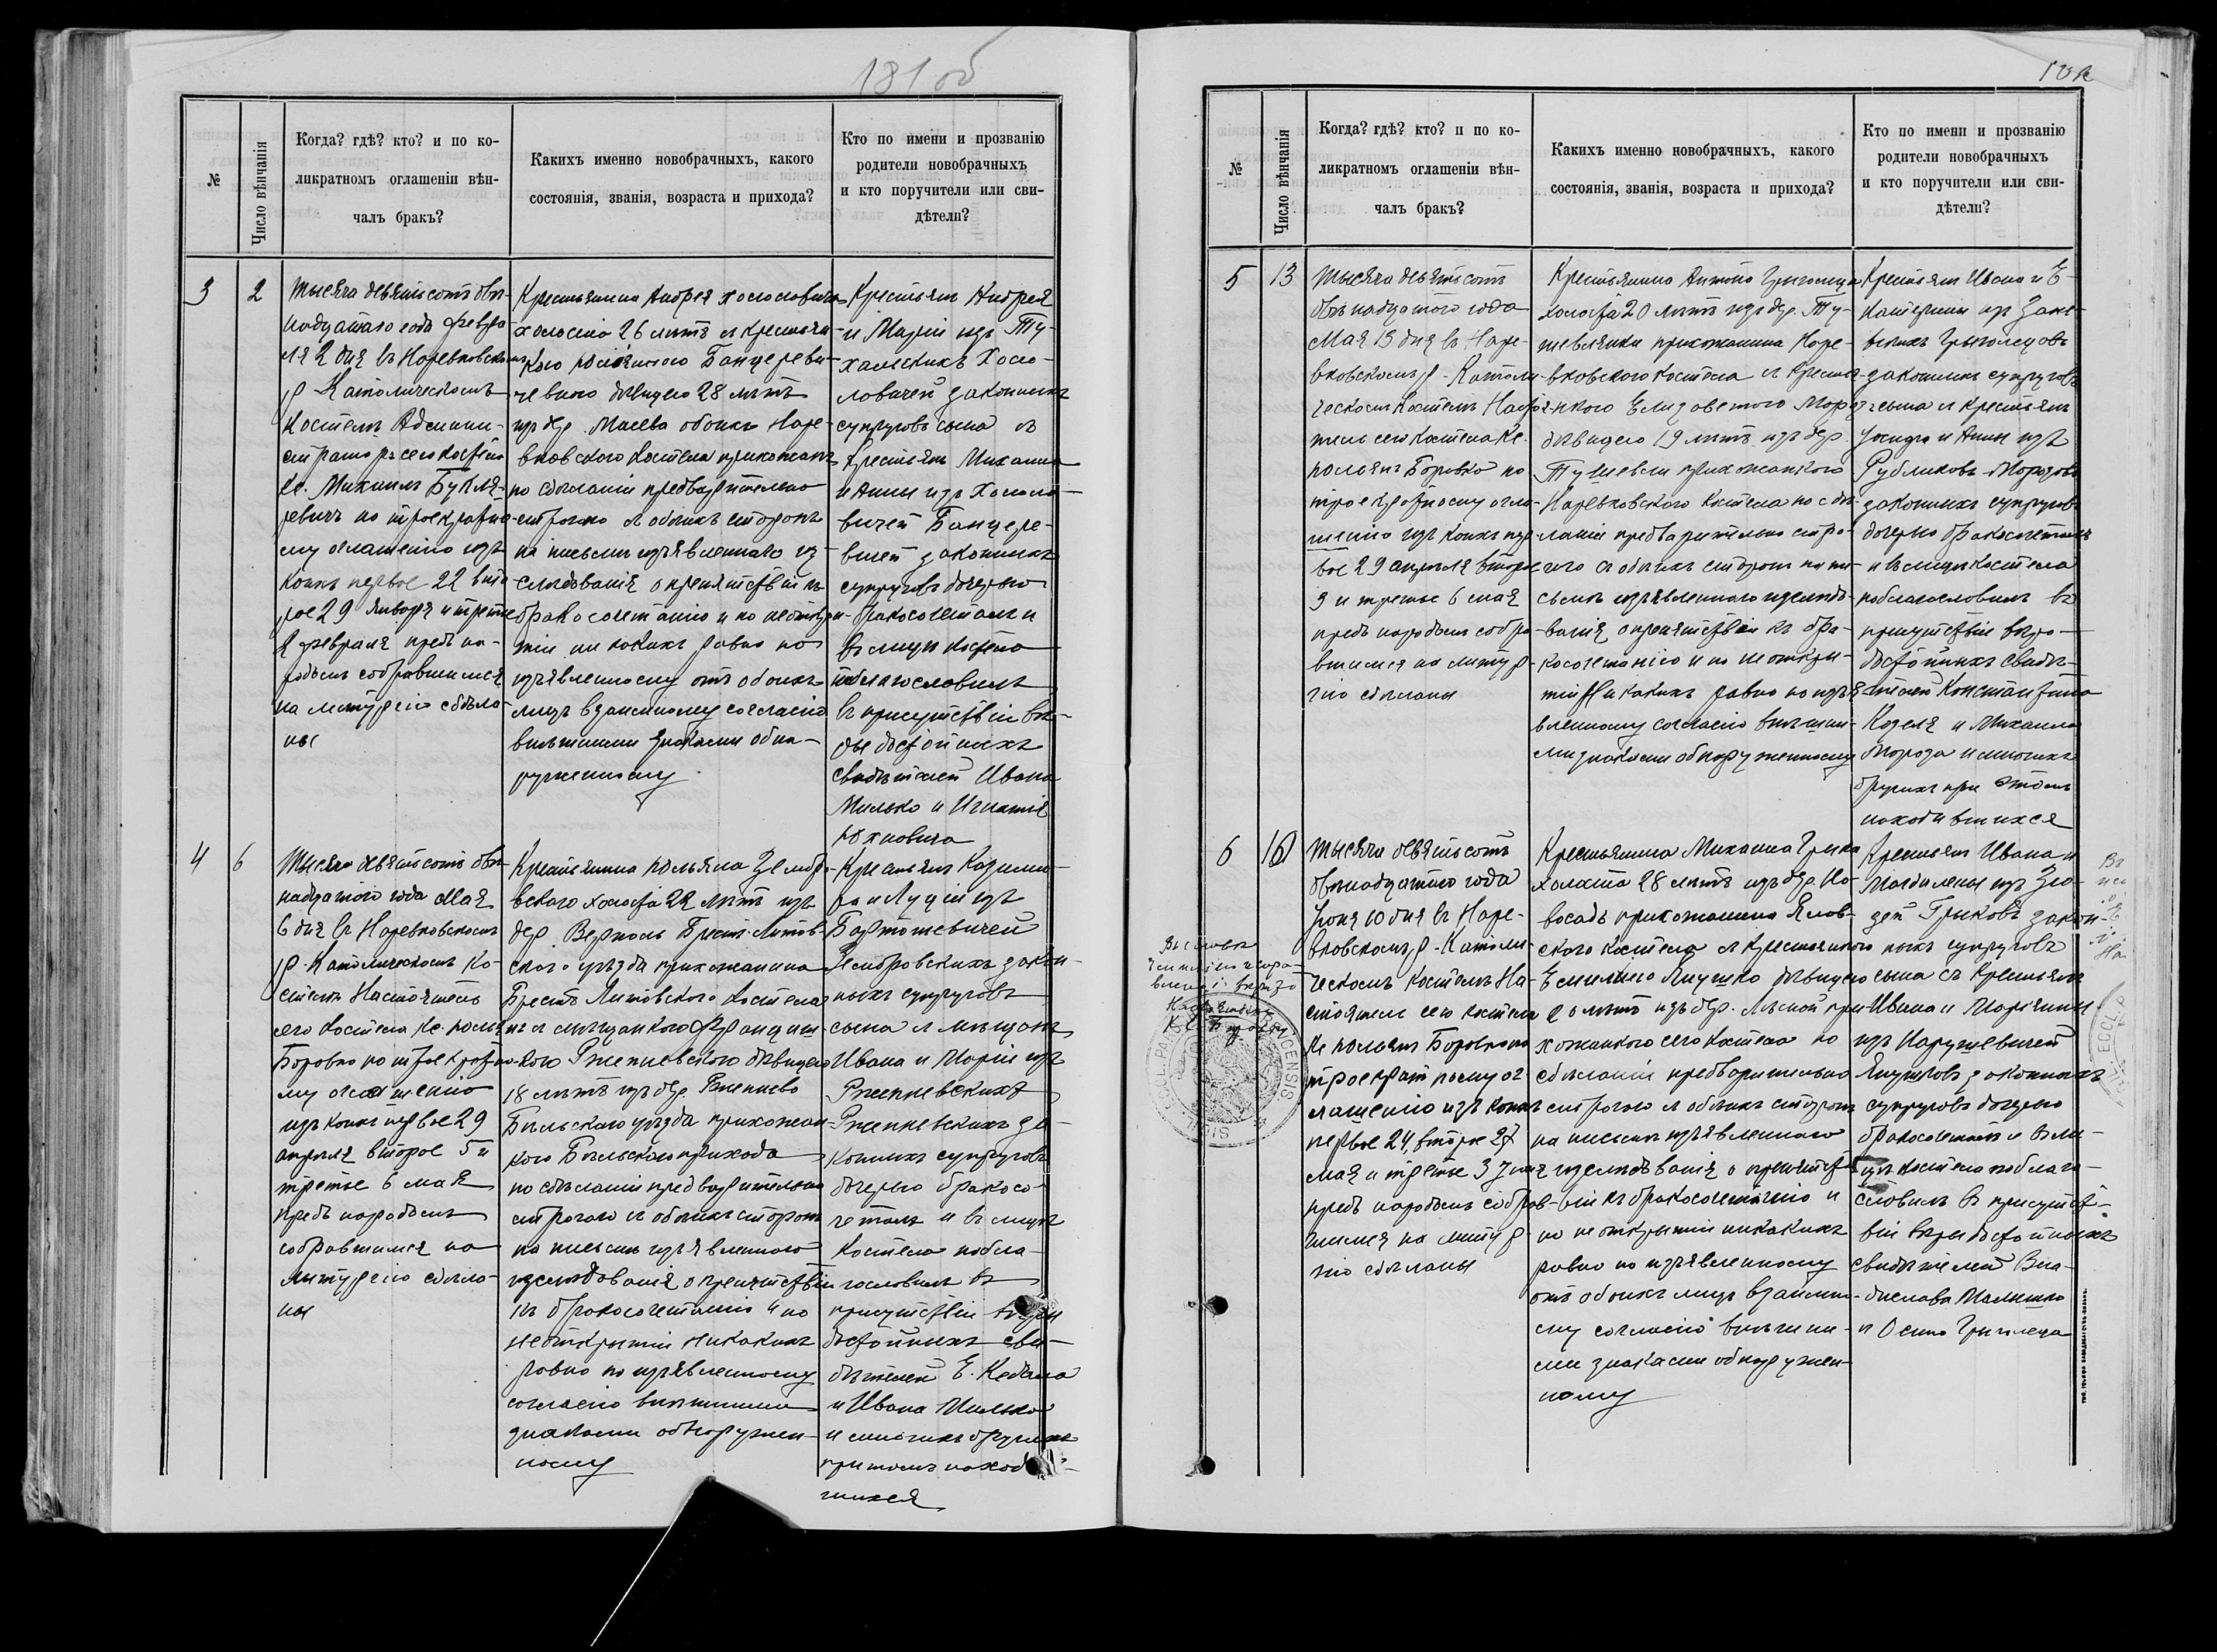 181 об
№
Число вѣнчанія
Когда? гдѣ? кто? и по ко-
ликратномъ оглашеніи вѣн-
чалъ бракъ?
Какихъ именно новобрачныхъ, какого
состоянія, званія, возраста и прихода?
Кто по имени и прозванію
родители новобрачныхъ
и кто поручители или сви-
дѣтели?
3
2
Тысяча девятьсотъ двѣ-
надцатаго года Февра-
ля 2 дня въ Наревковскомъ
р Католическомъ
Костелѣ Админи-
страторъ сего Костела
Кс. Михаилъ
по троекратно-
му оглашенію изъ
коихъ первое 22 вто
рое 29 Января и третье
2 февраля предъ на-
родомъ собравшимся
на литургію сдѣла-
ны
Крестьянина Андрея Холословича
холостаго 26 лѣтъ съ крестьян-
кою
дѣвицею 28 лѣтъ
изъ дер. Масева обоихъ Наре-
вковскаго Костела прихожанъ
по сдѣланіи предварительно
строгаго съ обѣихъ сторонъ
на письмѣ изъявленнаго из-
слѣдованія о препятствіи къ
бракосочетанію и по неоткры-
тіи ни какихъ равно по
изъявленному отъ обоихъ
лицъ взаимному согласію
внѣшними знаками обна-
руженному
Крестьянъ Андрея
и Маріи изъ
Холо-
словичей законныхъ
супруговъ сына съ
Крестьянъ Михаила
и Анны изъ Холосло-
вичей Банцере-
вичей законныхъ
супруговъ дочерью
бракосочеталъ и
въ лицѣ Костела
поблагословилъ
въ присутствіи вѣ-
ры достойныхъ
свидѣтелей Ивана
Милько и Игнатія
Юхновича
4
6
Тысяча девятьсотъ двѣ-
надцатаго года Мая
6 дня въ Наревковскомъ
р. Католическомъ Ко-
стелѣ Настоятель
сего Костела Кс. Юльянъ
Боровко по троекратно-
му оглашенію
изъ коихъ первое 29
апрѣля второе 5 и
третье 6 мая
предъ народомъ
собравшимся на
литургію сдѣла-
ны
Крестьянина Юльяна Земб-
вскаго холостаго 22 лѣтъ изъ
дер. Верполь Брест-Литов-
скаго уѣзда прихожанина
Брестъ Литовскаго Костела
съ мѣщанкою Францишкою
Ржепневскою дѣвицею
18 лѣтъ изъ дер. Ржепнево
Бѣльскаго уѣзда прихожан-
кою Бѣльскаго прихода
по сдѣланіи предварительно
строгаго съ обѣихъ сторонъ
на письмѣ изъявленнаго
изслѣдованія о препятствіи
къ бракосочетанію и по
неоткрытіи никакихъ
равно по изъявленному
согласію внѣшними
знаками обнаружен-
ному
Крестьянъ Казими-
ра и Луціи изъ
Бартошевичей
Земб­ровскихъ закон-
ныхъ супруговъ
сына съ мѣщанъ
Ивана и Маріи изъ
Ржепневскихъ
Ржепневскихъ за-
конныхъ супруговъ
дочерью бракосо-
четалъ и въ лицѣ
Костела побла-
гословилъ въ
присутствіи вѣры
достойныхъ сви-
дѣтелей
и Ивана Милько
и многихъ другихъ
при томъ находи-
вшихся
№
Число вѣнчанія
Когда? гдѣ? кто? и по ко-
ликратномъ оглашеніи вѣн-
чалъ бракъ?
Какихъ именно новобрачныхъ, какого
состоянія, званія, возраста и прихода?
Кто по имени и прозванію
родители новобрачныхъ
и кто поручители или сви-
дѣтели?
5
13
Тысяча девятьсотъ
двѣнадцатаго года
Мая 13 дня въ Наре-
вковскомъ р.-Католи-
ческомъ Костелѣ Настоя-
тель сего Костела Кс.
Юльянъ Боровко по
троекратному огла-
шенію изъ коихъ пер-
вое 29 апрѣля второе
9 и третье 6 мая
предъ народомъ собра-
вшимся на литур-
гію сдѣланы
Крестьянина Антона Григольца
холоста 20 лѣтъ изъ дер. Ту-
шевлянки прихожанина Наре-
вковскаго Костела съ крестья-
нкою Елизаветою Мороз
дѣвицею 19 лѣтъ изъ дер.
Тушевли прихожанкою
Наревковскаго Костела по сдѣ-
ланіи предварительно стро-
гаго съ обѣихъ сторонъ на пи-
сьмѣ изъявленнаго изслѣдо-
ванія о препятствіи къ бра-
косочетанію и по неоткры-
тіи Никакихъ равно по изъя-
вленному согласію внѣшни-
ми знаками обнаруженному
Крестьянъ Ивана и Е-
катерины изъ Зане-
вскихъ Григольцовъ
законныхъ супруговъ
сына съ крестьянъ
и Анны изъ
Рубликовъ Морозовъ
законныхъ супруговъ
дочерью бракосочеталъ
и въ лицѣ Костела
поблагословилъ въ
присутствіи вѣро-
достойныхъ свидѣ-
телей Константина
Козеля и Михаила
Мороза и многихъ
другихъ при этомъ
находившихся
6
10
Тысяча девятьсотъ
двѣнадцатаго года
Іюня 10 дня въ Наре-
вковскомъ р.-Католи-
ческомъ Костелѣ На-
стоятель сего Костела
Кс Юльянъ Боровко по
троекратному ог-
лашенію изъ коихъ
первое 24, второе 27
мая и третье 3 Іюня
предъ народомъ собрав-
шимся на литур-
гію сдѣланы
Крестьянина Михаила Грыка
холоста 28 лѣтъ изъ дер. Но-
восадъ прихожанина Ялов-
скаго Костела съ крестьянкою
Емиліею Янушко дѣвицею
20 лѣтъ изъ дер. Лѣсной при-
хожанкою сего Костела по
сдѣланіи предварительно
строгаго съ обѣихъ сторонъ
на письмѣ изъявленнаго
изслѣдованія о препятст-
віи къ бракосочетанію и
по неоткрытіи никакихъ
равно по изъявленному
отъ обоихъ лицъ взаимно-
му согласію внѣшни-
ми знаками обнаружен-
ному
Крестьянъ Ивана и
Магдалены изъ
Грыковъ закон-
ныхъ супруговъ
сына съ Крестьянъ
Ивана и Маріянны
изъ Нарушевичей
Янушковъ законныхъ
супруговъ дочерью
бракосочеталъ и въ ли-
цѣ Костела поблаго-
словилъ въ присутст-
віи вѣры достойныхъ
свидѣтелей Вла-
дислава Малышко
и Осипа Григольца